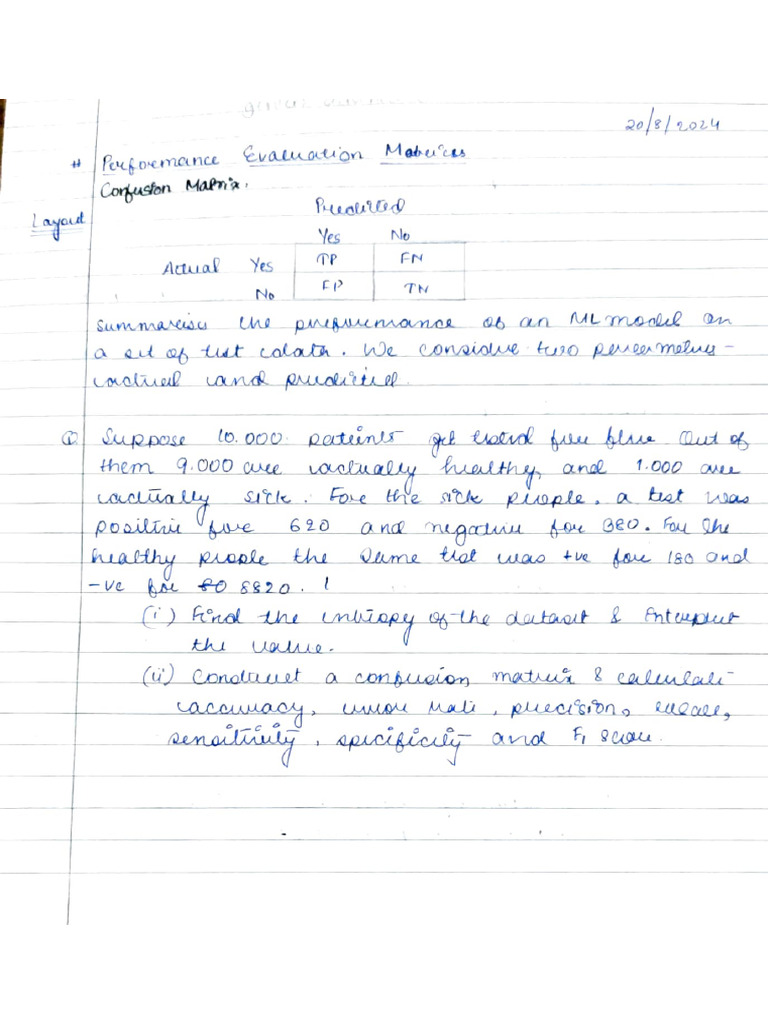 20/8/2024
# Performance Evaluation Metrices
Confusion Matrix.
Layout
Predicted
Yes No
Actual Yes TP FN
No FP TN
Summarises the performance of an ML model on
a set of test data. We consider two parameters -
actual and predicted.
Q Suppose 10.000 patients get tested for flue. Out of
them 9.000 are actually healthy, and 1.000 are
actually sick. For the sick people, a test was
positive for 620 and negative for 380. For the
healthy people the same test was +ve for 180 and
-ve for 8820.
(i) Find the entropy of the dataset & Interpret
the value.
(ii) Construct a confusion matrix & calculate
accuracy, error rate, precision, recall,
sensitivity, specificity and F1 score.